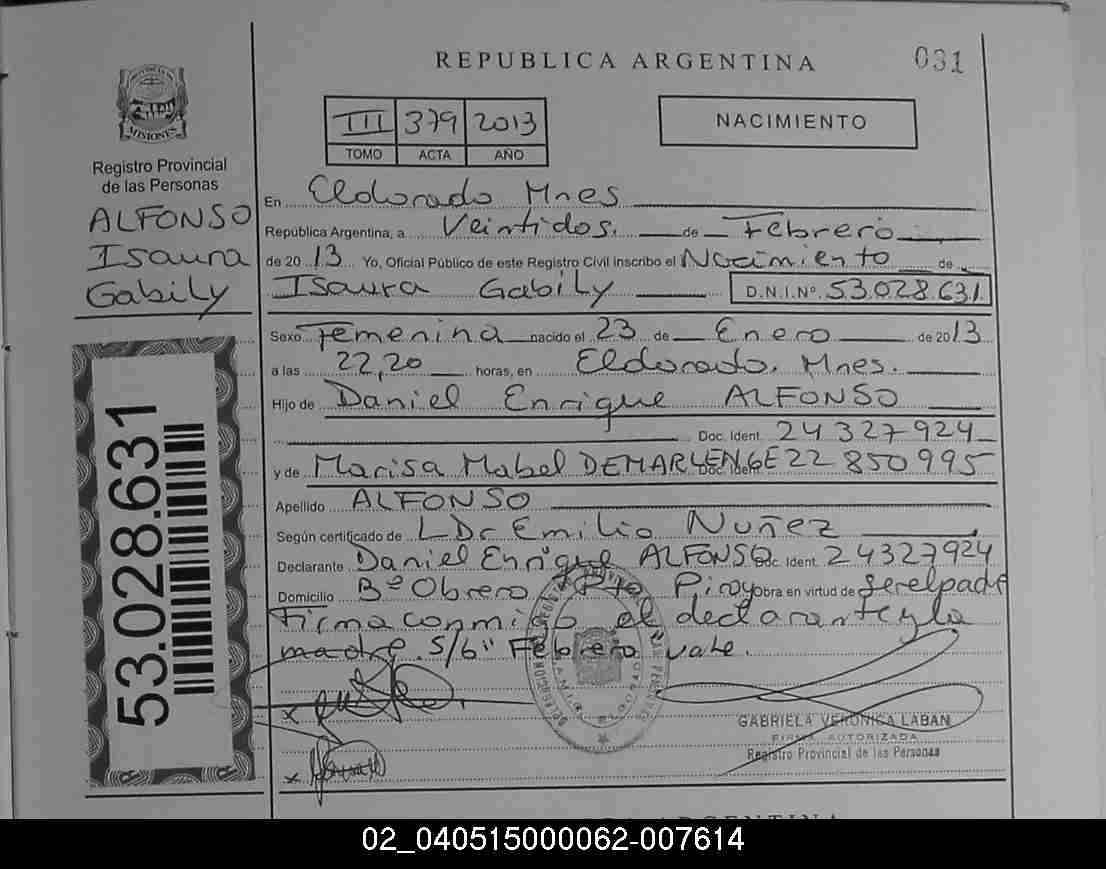 REPUBLICA ARGENTINA
031
PROVINCIA DE
MISIONES
Registro Provincial
de las Personas
ALFONSO
Isaura
Gabily
53.028.631
III 379 2013
TOMO ACTA AÑO
NACIMIENTO
En Eldorado Mnes
República Argentina, a Veintidos. de Febrero
de 2013 Yo, Oficial Público de este Registro Civil inscribo el Nacimiento de
Isaura Gabily D.N.I.Nº 53.028.631
Sexo Femenina nacido el 23 de Enero de 2013
a las 22,20 horas, en Eldorado. Mnes.
Hijo de Daniel Enrique ALFONSO
Doc. Ident. 24 327924
y de Marisa Mabel DEMARLENGE Doc. Ident. 22 850995
Apellido ALFONSO
Según certificado de LDr Emilio Nuñez
Declarante Daniel Enrique ALFONSO Doc. Ident. 24327924
Domicilio Bº Obrero Pto Piray Obra en virtud de ser el padre
Firma conmigo el declarante y la
madre. S/b" Febrero vale.
x
GABRIELA VERONICA LABAN
FIRMA AUTORIZADA
Registro Provincial de las Personas
x
ARGENTINA
02_040515000062-007614